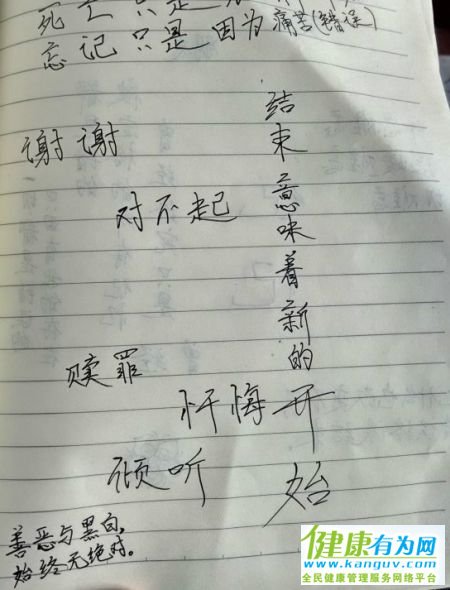 死亡只是
忘记只是因为痛苦(错误)
谢谢
对不起
结束意味着新的开始
赎罪
忏悔
倾听
善恶与黑白,
始终无绝对。
健康有为网
www.kanguv.com
全民健康管理服务网络平台